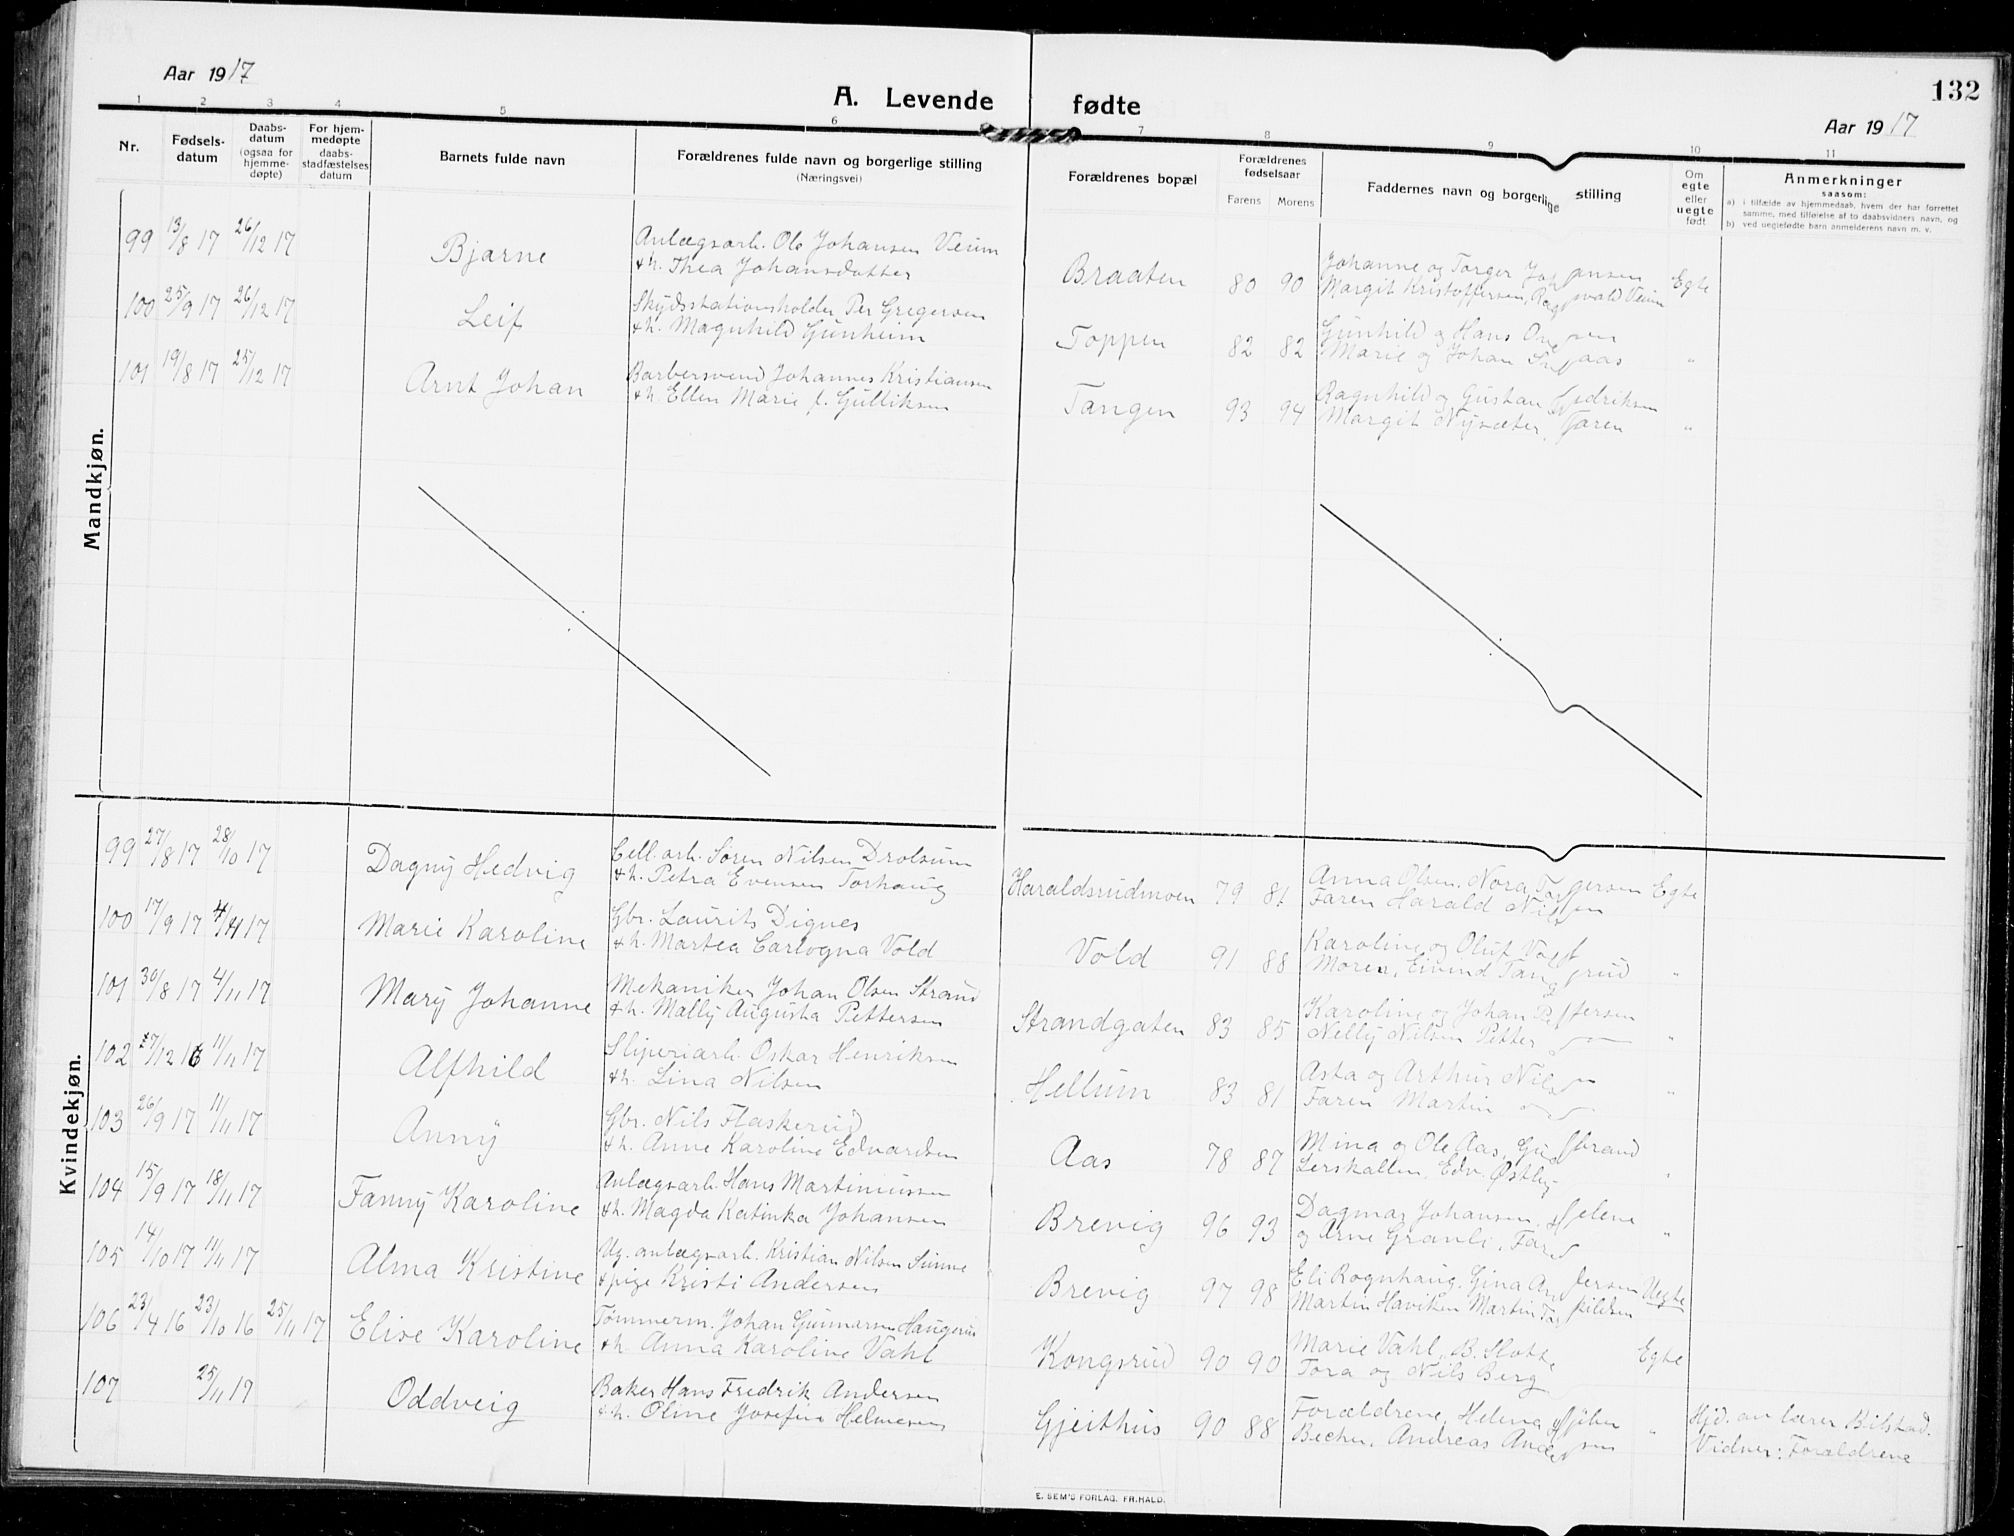 132
Aar 1917
A. Levende fødte
Aar 1917
1 2 3 4 5 6 7 8 9 10 11
Nr.
Fødsels-
datum
Daabs-
datum
(ogsaa for
hjemme-
døpte)
For hjem-
medøpte
daabs-
stadfæstelses
datum
Barnets fulde navn
Forældrenes fulde navn og borgerlige stilling
(Næringsvei)
Forældrenes bopæl
Forældrenes
fødselsaar
Farens Morens
Faddernes navn og borgerlige stilling
Om
egte
eller
uegte
født
Anmerkninger
saasom:
a) i tilfælde av hjemmedaab, hvem der har forrettet
samme, med tilføielse af to daabsvidners navn, og
b) ved uegtefødte barn anmelderens navn m. v.
Mandkjøn.
99 13/8 17 26/12 17 Bjarne
Anlægsarb. Ole Johansen Veum
& h. Thea Johansdatter
Braaten 80 90
Johanne og Torger Johansen
Margit Kristoffersen, Ragnvald Veum
Egte
100 25/9 17 26/12 17 Leif
Skydsstationsholder Per Gregersen
& h. Magnhild Gunheim
Toppen 82 82
Gunhild og Hans
Marie og Johan
"
101 19/8 17 25/12 17 Arnt Johan
Barbersvend Johannes Kristiansen
& h. Ellen Marie f. Gulliksen
Tangen 93 94
Ragnhild og Gustav Fredriksen
Margit Nysæter, Faren
"
Kvindekjøn.
99 27/8 17 28/10 17 Dagny Hedvig
Cell. arb. Søren Nilsen Drolsum
& h. Petra Evensen Torhaug
Haraldsrudmoen 79 81
Anna Olsen, Nora Torgersen
Faren Harald Nilsen
Egte
100 17/9 17 4/11 17 Marie Karoline
Gbr. Laurits Dignes
& h. Martea Carlogna Vold
Vold 91 88
Karoline og Oluf Vold
Moren, Eivind
"
101 30/8 17 4/11 17 Mary Johanne
Mekaniker Johan Olsen Strand
& h. Mally Augusta Pettersen
Strandgaten 83 85
Karoline og Johan Pettersen
Nelly Nilsen Petter
"
102 27/12 16 11/11 17 Alfhild
Sliperiarb. Oskar Henriksen
& h. Lina Nilsen
Hellum 83 81
Asta og Arthur Nilsen
Faren Martin
"
103 26/9 17 11/11 17 Anny
Gbr. Nils Flaskerud
& h. Anne Karoline Edvardsen
Aas 78 87
Mina og Ole Aas, Gudbrand
Lerskallen, Edv. Østby
"
104 15/9 17 18/11 17 Fanny Karoline
Anlægsarb. Hans Martinussen
& h. Magda Katinka Johansen
Brevig 96 93
Dagmar Johansen, Helene
og Arne Granli, Faren
"
105 14/10 17 11/11 17 Alma Kristine
Ug. anlægsarb. Kristian Nilsen Sunne
& pige Kristi Andersen
Brevig 97 98
Eli Rognhaug, Gina Andersen
Martin Haviken Martin Torkildsen
Uegte
106 23/4 16 23/10 16 25/11 17 Elise Karoline
Tømmerm. Johan Gunnarsen Haugerud
& h. Anna Karoline Vahl
Kongsrud 90 90
Marie Vahl, B. Slotte
Tora og Nils Berg
Egte
107 25/11 17 Oddveig
Baker Hans Fredrik Andersen
& h. Oline Josefine Helmersen
Gjeithus 90 88
Forældrene, Helena
Becher, Andreas Andersen
"
Hjd. av lærer Bilstad.
Vidner: Forældrene
E. SEM'S FORLAG. FR.HALD.